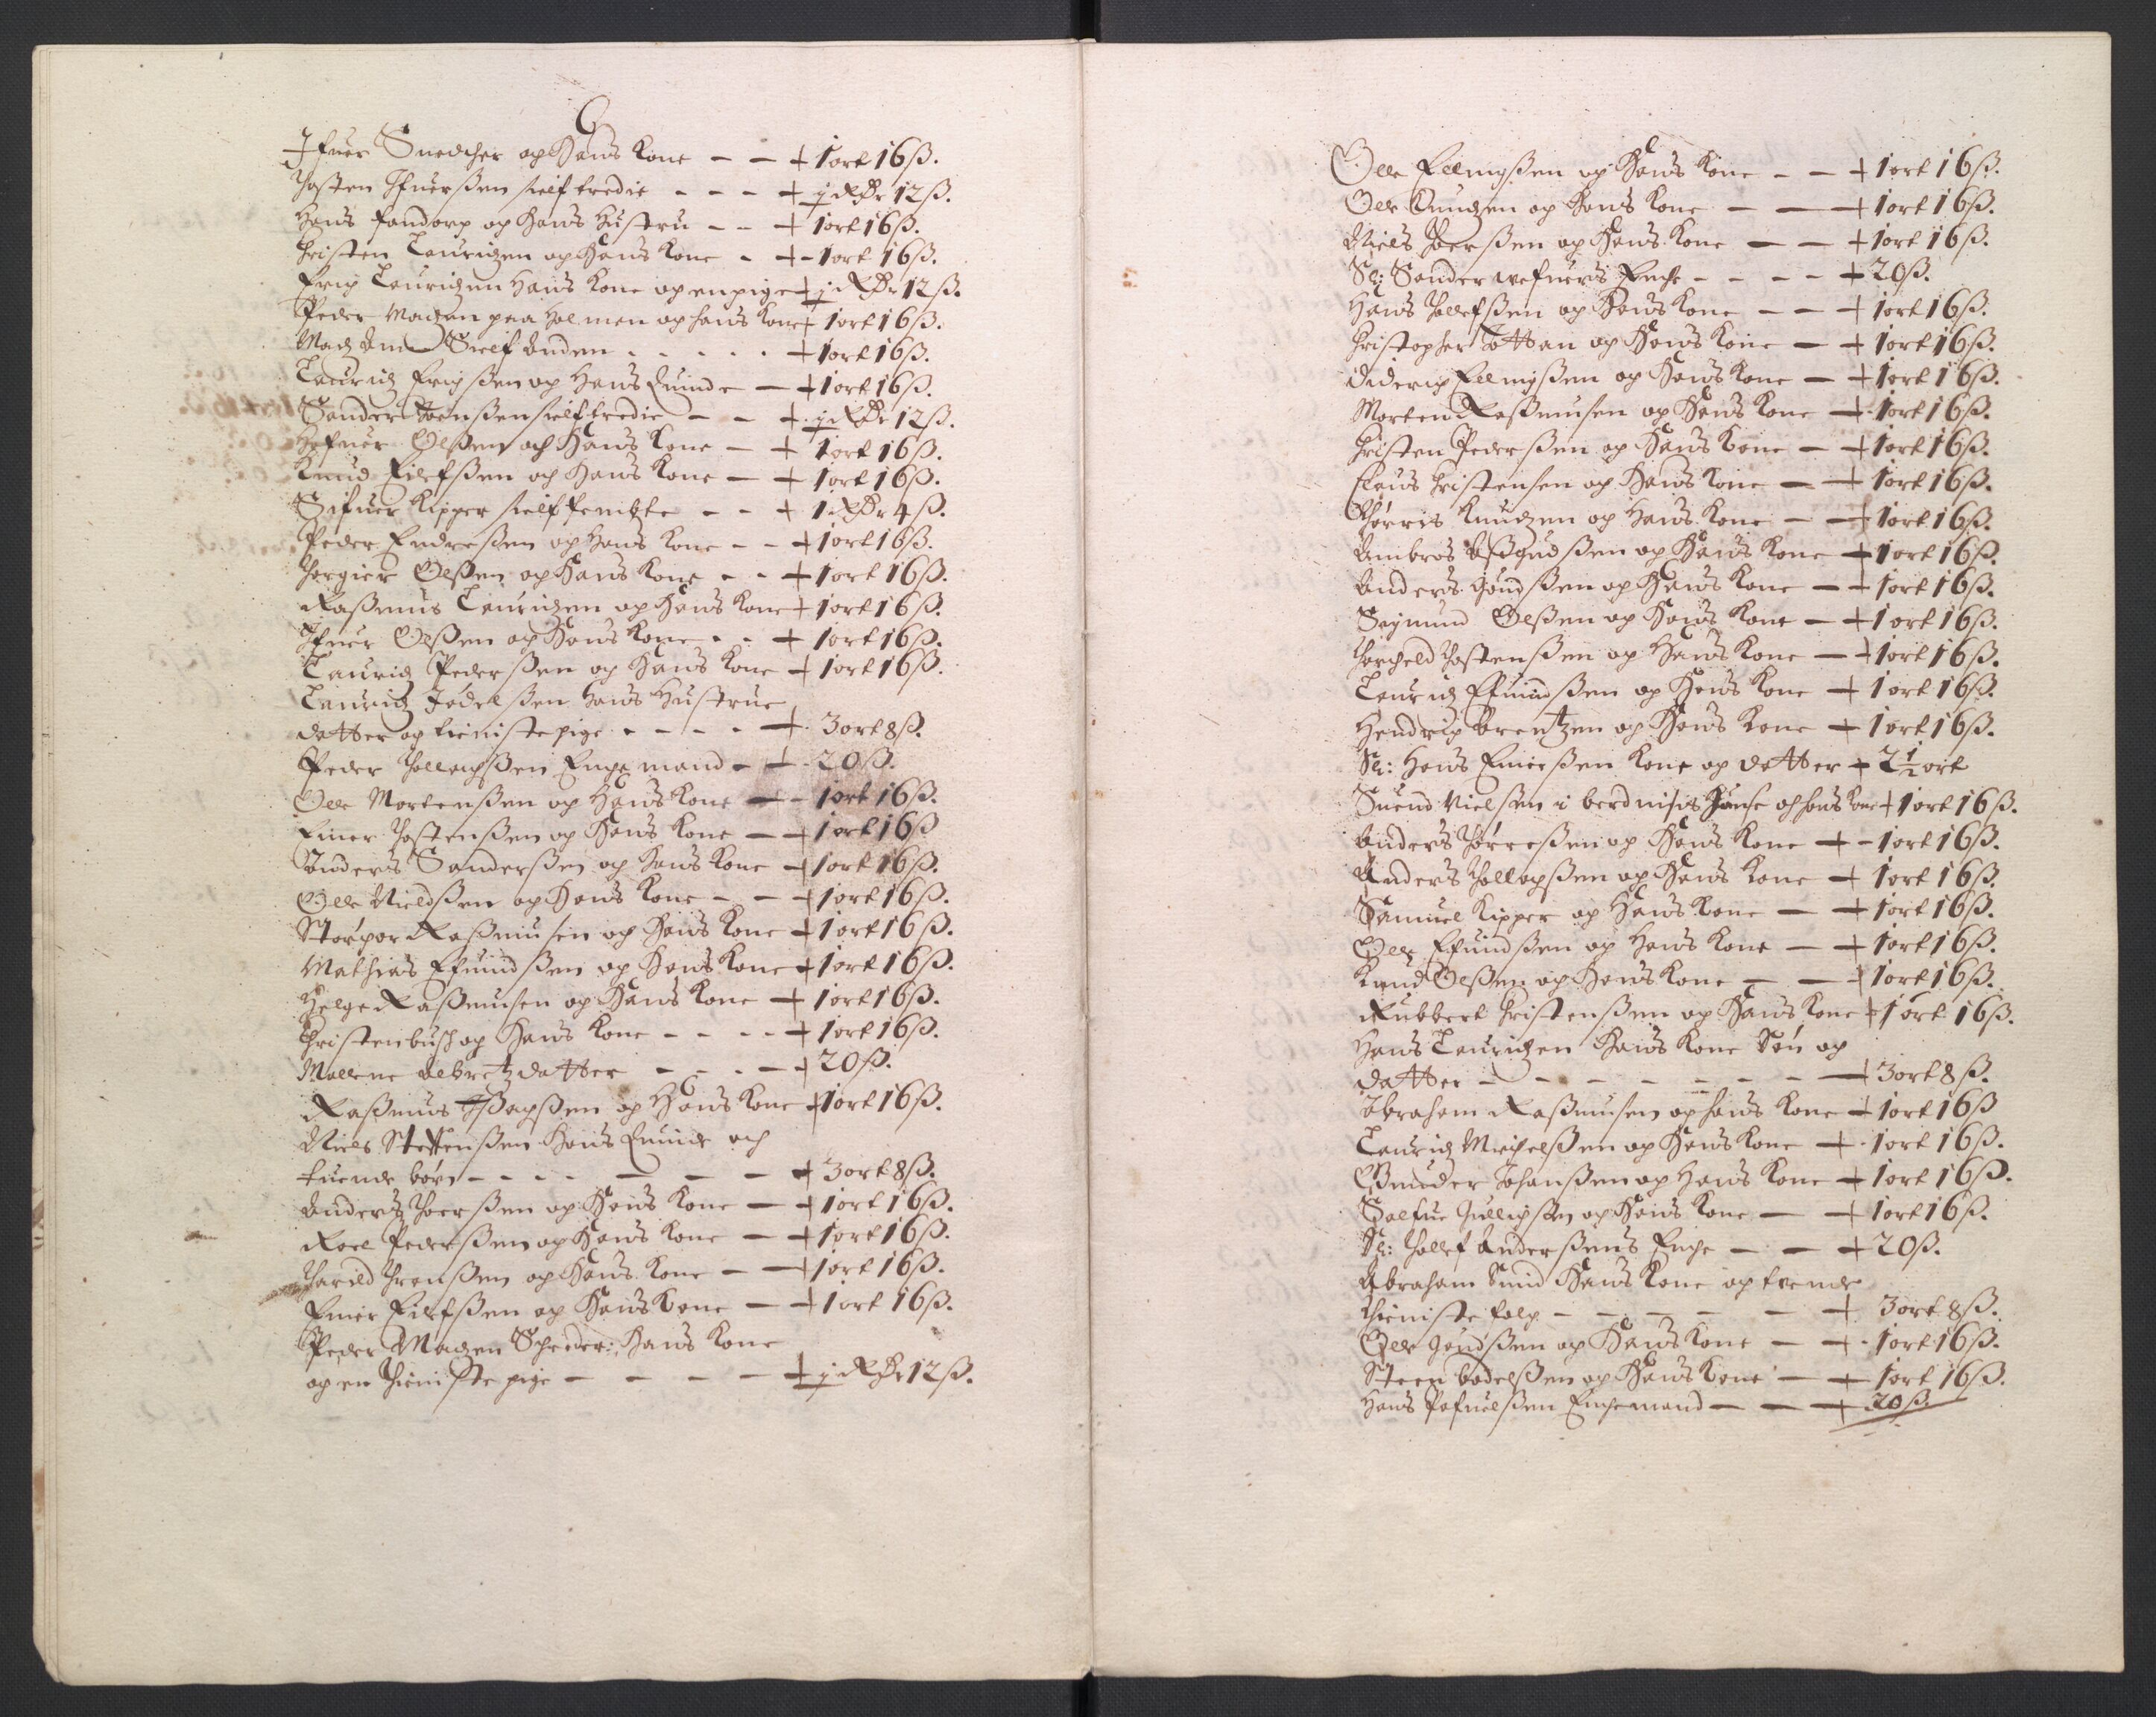 Ifuer Snedcher og Hans Kone - - + 1 ort 16 ß.
Tosten Ifuerßen self tredie - - - + j Rdr 12 ß.
Hans fandorp og Hans Hustru - - + 1 ort 16 ß.
Christen Lauridzen og Hans Kone - + - 1 ort 16 ß.
Erich Lauridzen Hans Kone og en pige + j Rdr 12 ß.
Peder Madzen paa Holmen og hans Kone + 1 ort 16 ß.
Madz Self Anden - - - - - + 1 ort 16 ß.
Lauridz Erichßen og Hans Quinde - + 1 ort 16 ß.
Sander Joenßen self tredie - - + j Rdr 12 ß.
Olßen och Hans Kone - + 1 ort 16 ß.
Knud Eilefßen och Hans Kone - + 1 ort 16 ß.
Sifuer Kipper self femtte - - + 1 Rdr 4 ß.
Peder Endreßen og Hans Kone - - + 1 ort 16 ß.
Thorgier Olßen og Hans Kone - - + 1 ort 16 ß.
Raßmus Lauridzen og Hans Kone + 1 ort 16 ß.
Ifuer Olßen og Hans Kone - - + 1 ort 16 ß.
Lauridz Pederßen og Hans Kone + 1 ort 16 ß.
Lauridz Hans Hustrue
datter og tieniste pige - - - - + 3 ort 8 ß.
Peder Enche mand - + - 20 ß.
Olle Mortenßen og Hans Kone - - 1 ort 16 ß.
Einer Tostenßen og Hans Kone - + 1 ort 16 ß
Anders Sanderßen og Hans Kone + 1 ort 16 ß.
Olle Nielßen og Hans Kone - - + 1 ort 16 ß.
Raßmusen og Hans Kone + 1 ort 16 ß.
Mathias Efuindßen og Hans Kone + 1 ort 16 ß.
Helge Raßmusen og Hans Kone + 1 ort 16 ß.
Christen busch og Hans Kone - - - - + 1 ort 16 ß.
Mallene Albretz datter - - - - + 20 ß.
Raßmus Ißachßen og Hans Kone + 1 ort 16 ß.
Niels Steffenßen Hans Quinde och
tuende børn - - - - - - - + 3 ort 8 ß.
Anders Thorßen og Hans Kone - + 1 ort 16 ß.
Roel Pederßen og Hans Kone - + 1 ort 16 ß.
Tharild og Hans Kone - + 1 ort 16 ß.
Einer Eilefßen og Hans Kone - + 1 ort 16 ß.
Peder Madzen Schreder: Hans Kone
og en thieniste pige - - - - + j Rdr 12 ß.
Olle Ellingßen og Hans Kone - - + 1 ort 16 ß.
Olle Amundzen og Hans Kone - - + 1 ort 16 ß.
Niels Thorßen og Hans Kone - - + 1 ort 16 ß.
Sl: Sander Enche - - - - + 20 ß.
Hans Tollefßen og Hans Kone - - + 1 ort 16 ß.
Christopher og Hans Kone - + 1 ort 16 ß.
Diderich Ellingßen og Hans Kone - + 1 ort 16 ß.
Morten Raßmusen og Hans Kone + 1 ort 16 ß.
Christen Pederßen og Hans Kone - + 1 ort 16 ß.
Claus Christensen og Hans Kone - + 1 ort 16 ß.
Thørris Knudzen og Hans Kone - + 1 ort 16 ß.
Ambros og Hans Kone + 1 ort 16 ß.
Anders og Hans Kone - + 1 ort 16 ß.
Sigmund Olßen og Hans Kone - + 1 ort 16 ß.
Thorcheld Tostenßen og Hans Kone - + 1 ort 16 ß.
Lauridz Efuindßen og Hans Kone + 1 ort 16 ß.
Hendrich brentzen og Hans Kone + 1 ort 16 ß.
Sl: Hans Einerßen Kone og datter + 2 1/2 ort
Suend Nielßen i och hans Kone + 1 ort 16 ß.
Anders Thørreßen og Hans Kone + - 1 ort 16 ß.
Anders og Hans Kone + 1 ort 16 ß.
Samuel Kipper og Hans Kone - + 1 ort 16 ß.
Olle Efuindßen og Hans Kone - + 1 ort 16 ß.
Knud Olßen og Hans Kone - - + 1 ort 16 ß.
Rubbert Christenßen og Hans Kone + 1 ort 16 ß.
Hans Lauridzen Hans Kone Søn og
datter - - - - - - - - + 3 ort 8 ß.
Abraham Raßmusen og hans Kone + 1 ort 16 ß
Lauridz Michelßen og Hans Kone + 1 ort 16 ß.
Johanßen og Hans Kone + 1 ort 16 ß.
Salfue og Hans Kone - + 1 ort 16 ß.
Sl: Tollef Anderßens Enche - - + 20 ß.
Abraham Smid Hans Kone og tvende
thieniste folch - - - - - + 3 ort 8 ß.
Olle og Hans Kone - + - 1 ort 16 ß.
Steen bodelßen og Hans Kone - + 1 ort 16 ß.
Hans Pofuelßen Enchemand - - + 20 ß.